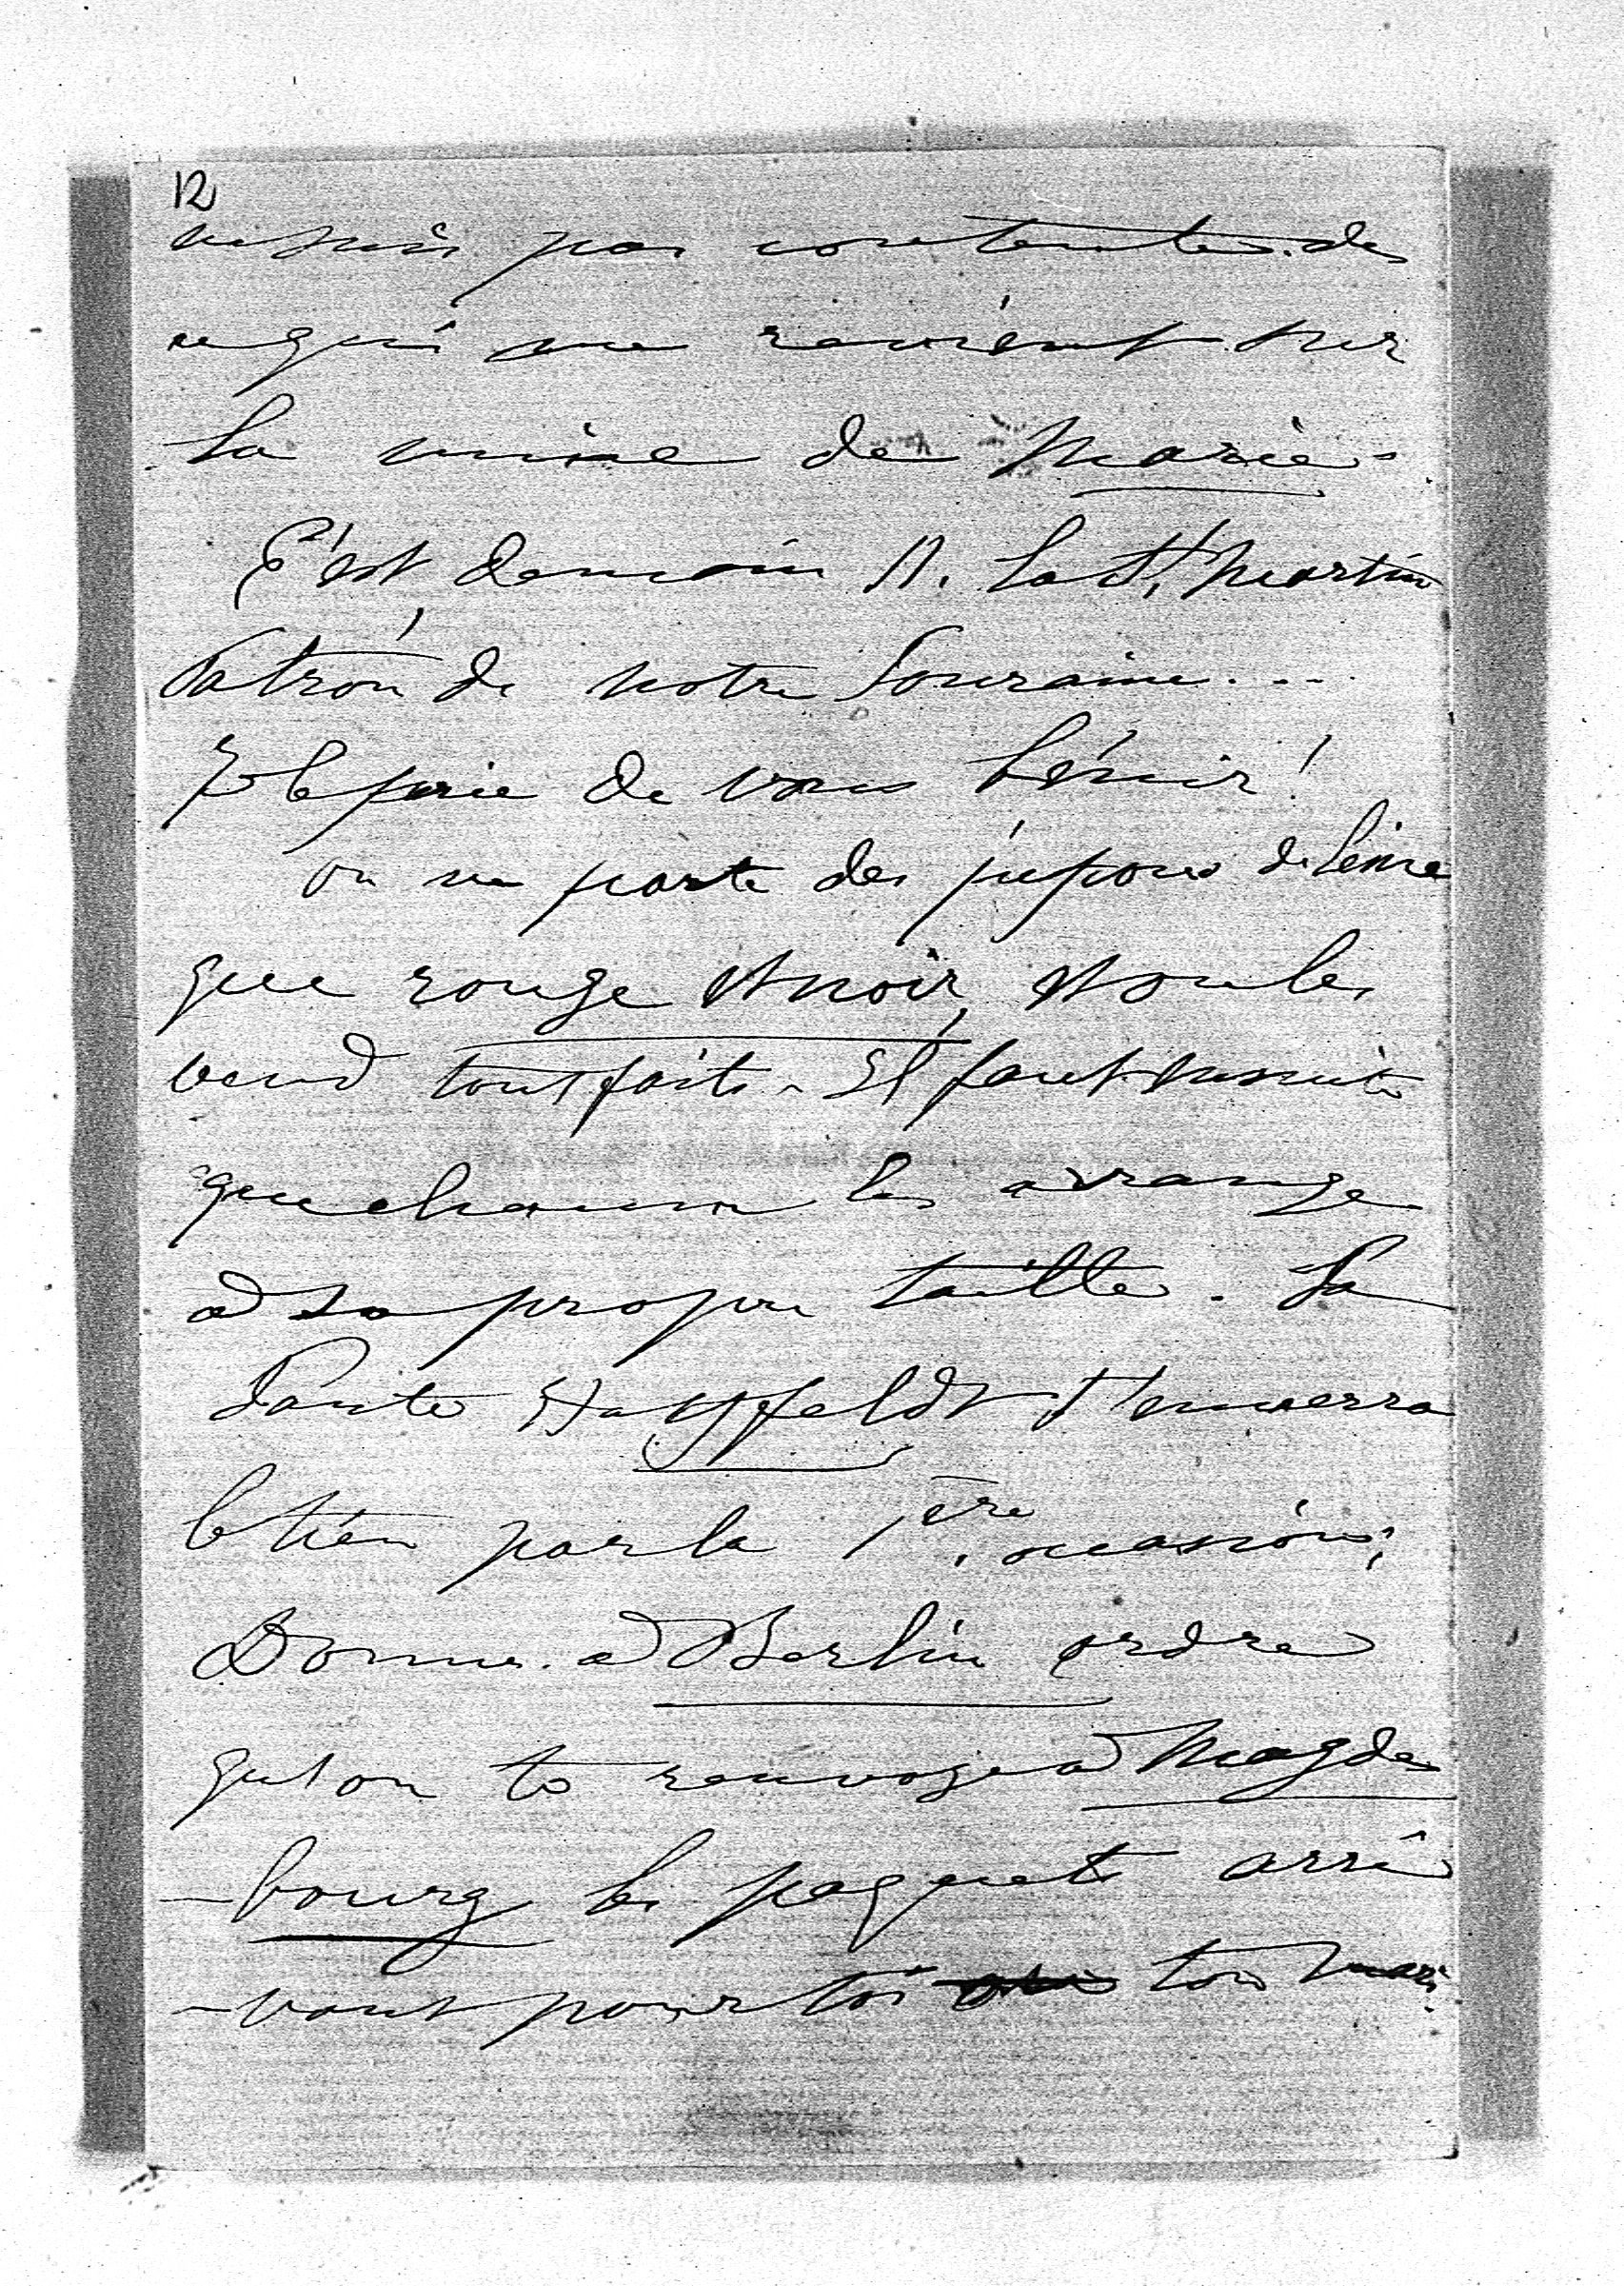 12
ne suis pas contente de
ce qui me revient sur
la mine de Marie.
C'est demain 11. la St. Martin
Patron de notre Touraine....
Je le prie de vous bénir!
on ne porte des jupons de laine
que rouge et noir, et on les
vend tout faits - Il faut ensuite
que chacune les arrange
à sa propre taille. La
Tante Hatzfeldt t'enverra
le tien par la 1ère occasion;
Donne à Berlin ordre
qu'on te renvoye à Magde
-bourg les paquets arri
-vant pour toi ton mari